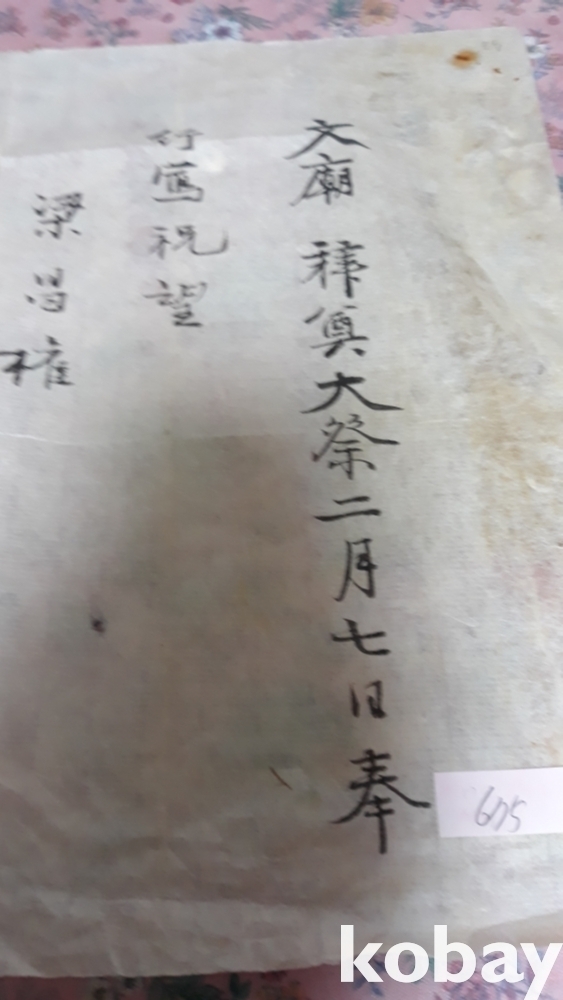 文廟 釋奠大祭二月七日奉
行寫祝望
梁昌権
675
kobay